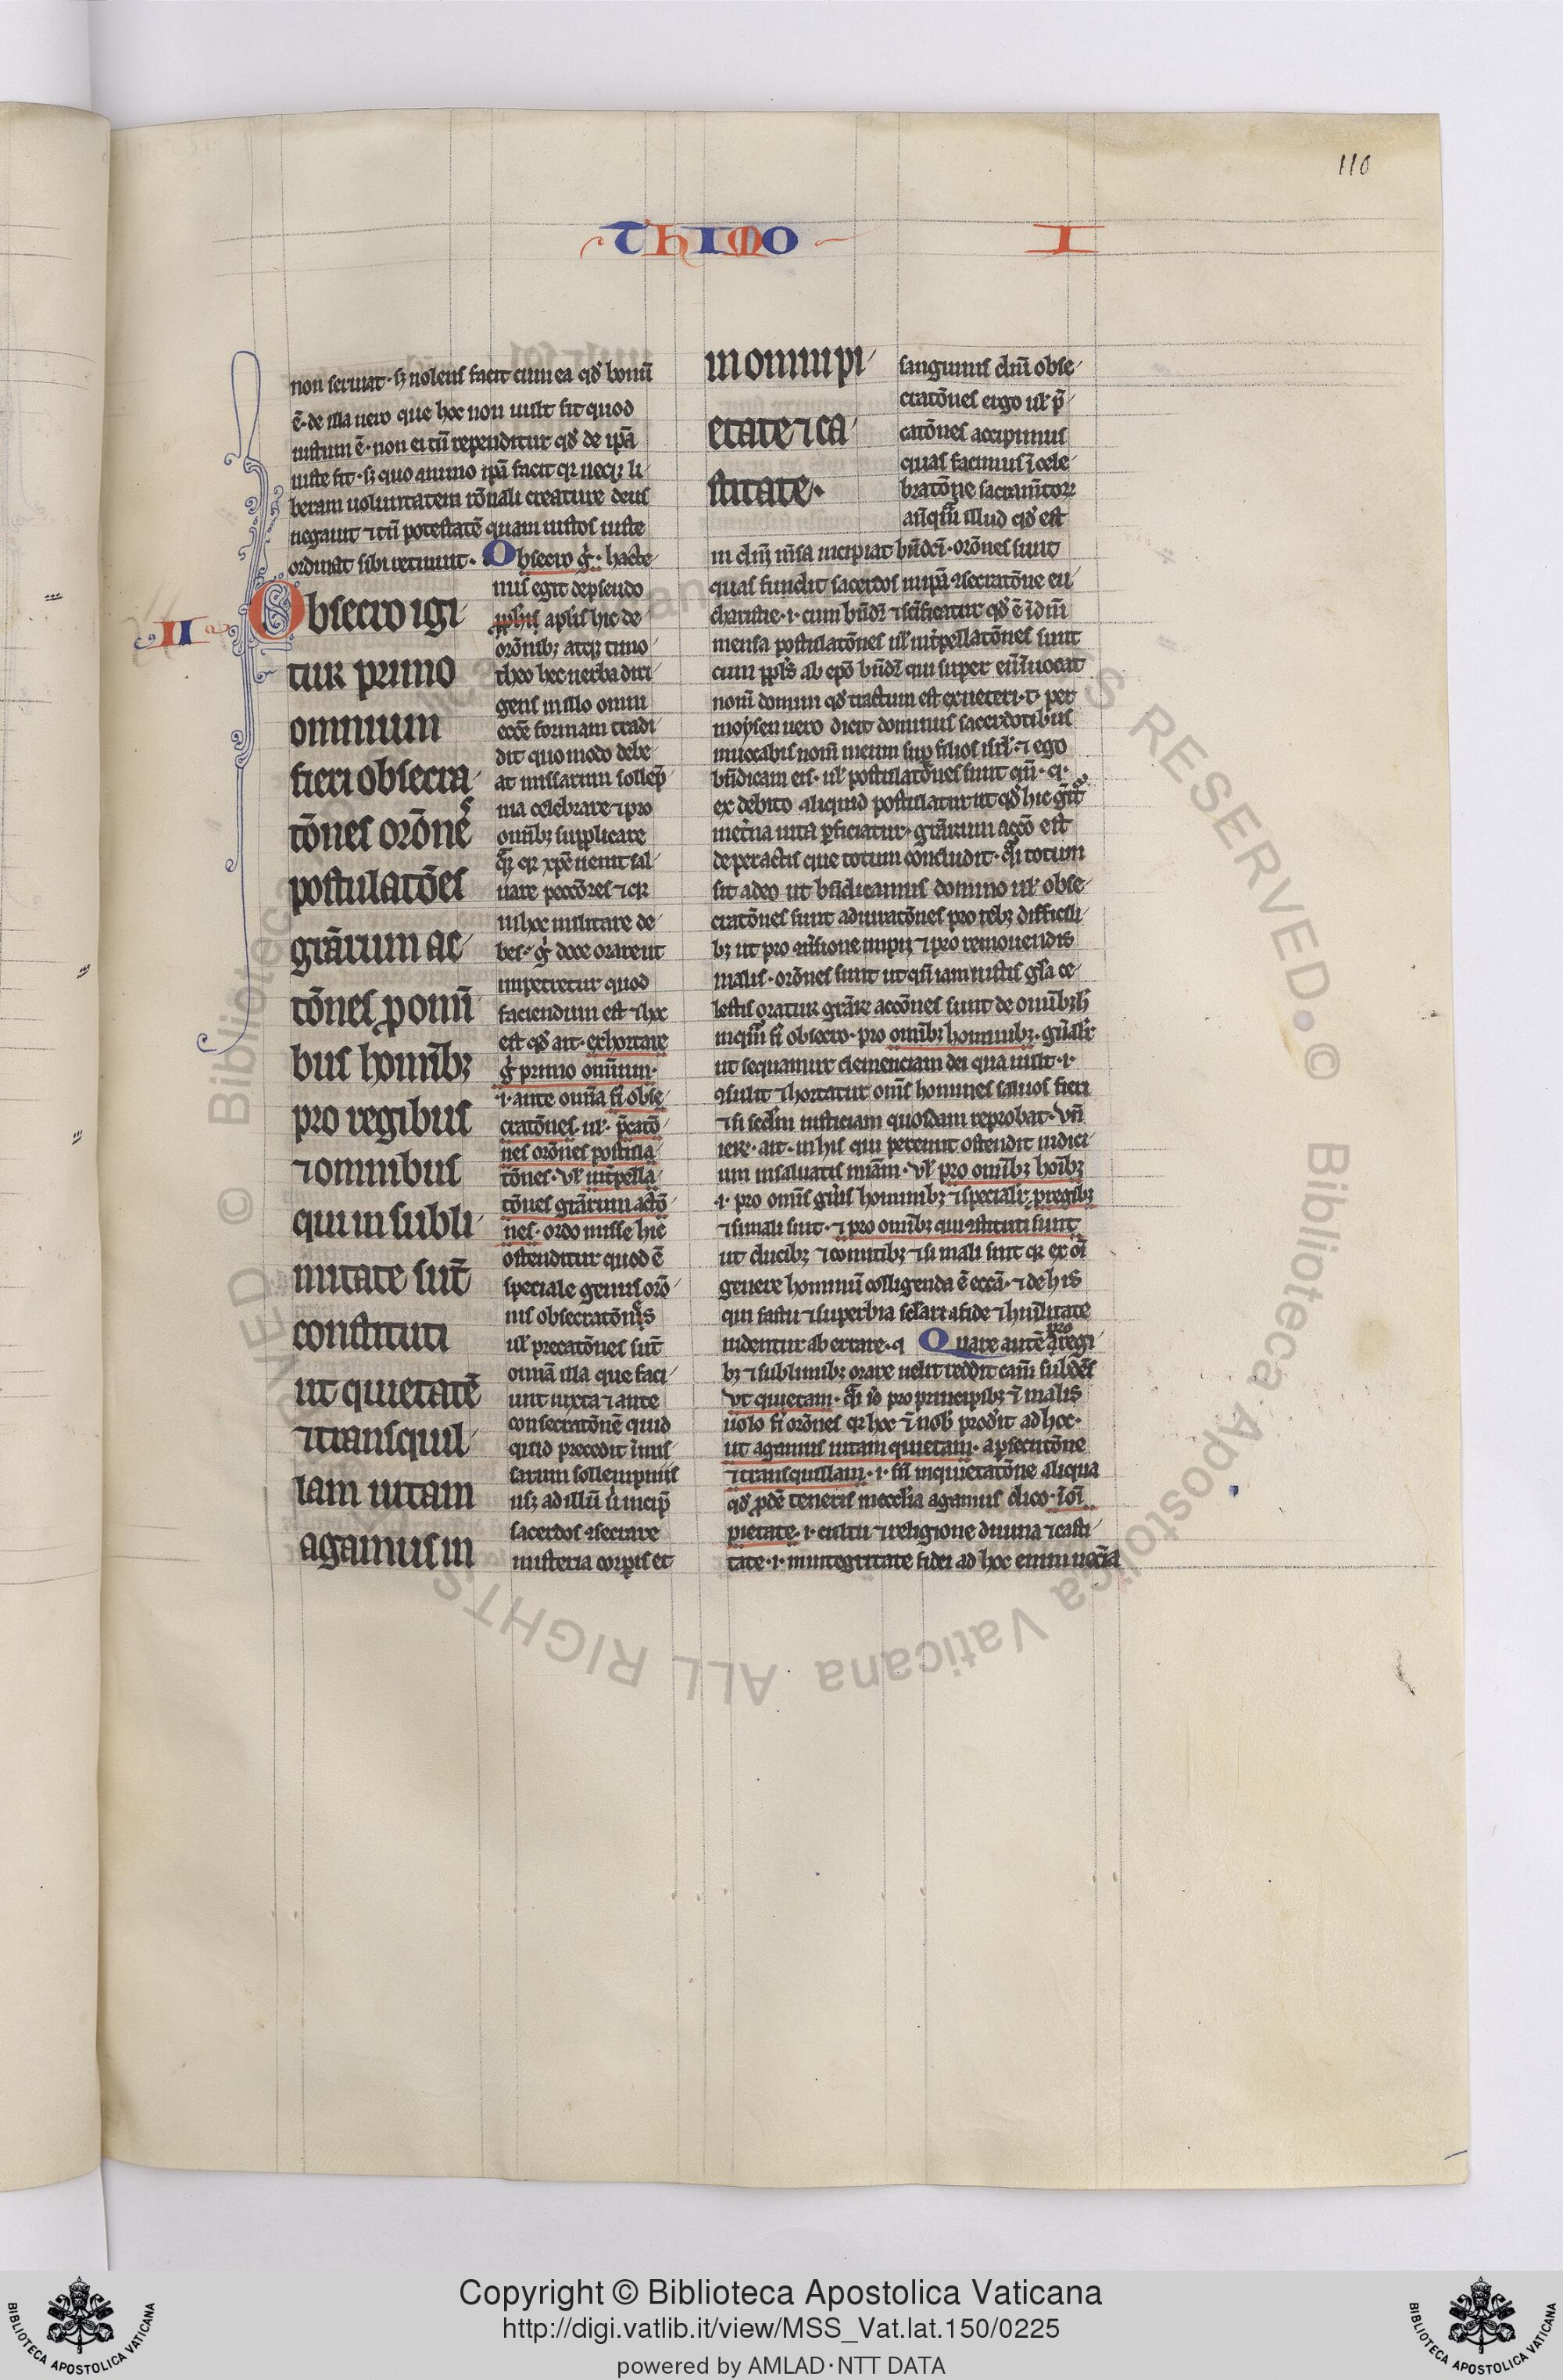 110
THIMO I
non seruat· sꝫ nolens facit cum ea qđ bonū
ē· de illa uero que hoc non uult fit quod
iustum ē· non ei tn̄ rependitur qđ de ipā
iuste fit· sꝫ quo animo ipā facit qꝛ neqꝫ li
beram uoluntatem rōnali creature deus
negauit ⁊ tn̄ potestatē quam iustos iuste
ordinat sibi retinuit·
II
Obsecro igi
tur primo
omnium
fieri obsecra
tōnes orōnes
postulatōes
grārum ac
tōnes ꝓ omī
bus homībꝫ
pro regibus
⁊ omnibus
qui in subli
mitate sūt
constituti
ut quietatē
⁊ transquil
lam uitam
agamus in
Obsecro g̊· hacte
nus egit de pseudo
aplis hic de
orōnibꝫ atqꝫ timo
theo hec uerba diri
gens in illo omni
eccē formam tradi
dit quo modo debe
at missarum sollēp
nia celebrare ⁊ pro
omībꝫ supplicare
qꝛ xp̄c uenit sal
uare peccōres ⁊ qꝛ
in hoc militare de
bes· g̊ doce orarent
impetretur quod
faciendum est ⁊ hoc
est qđ ait· exhortare
g̊ primo omīum·
·i· ante omīa fi obse
cratōnes· uł· p̄catō
nes orōnes postula
tōnes· uł int̄pella
tōnes grārum actō
nes· ordo misse hic
ostenditur quod ē
speciale genus orō
nis obsecratōnes
uł precatōnes sūt
omīa illa que faci
unt iuxta ⁊ ante
consecratōnē quid
quid precedit ī mis
sarum sollempniis
usꝫ ad illū ū incip̄
sacerdos ꝯsecrare
misteria corpis et
in omni pi
etate ⁊ ca
stitate·
sanguinis dn̄i obse
cratōnes ergo uł p̄
catōnes accipimus
quas facimus ī cele
bratōne sacramētoꝝ
anq̄m illud qđ est
in dn̄i m̄sa incipiat bn̄dici· orōnes sunt
quas fundit sacerdos in ipā ꝯsecratōne eu
charistie· i· cum bn̄dr̄ ⁊ sc̄ificatur qđ ē ī dn̄i
mensa postulatōnes uł int̄pellatōnes sunt
cum ppl̄s ab ep̄o bn̄dr̄ qui super eū īuocat
nom̄ domini qđ tractum est ex ueteri· t· per
moysen uero dicit dominus sacerdotibus
inuocabis nom̄ meum sup filios isrł· ⁊ ego
bn̄dicam eis· uł postulatōnes sunt
ex debito aliquid postulatur ut qđ hic
in et̄na uita ꝑficiatur· grārum accō est
de peractis que totum concludit· totum
sit adeo ut bn̄dicamus domino uł obse
cratōnes sunt adiuratōnes pro rebꝫ difficili
bꝫ ut pro ꝯūsione impij ⁊ pro remouendis
malis· orōnes sunt ut cū iam iustis gła ce
lestis oratur grārꝫ accōnes sunt de omībꝫ
inquā fi obsecro· pro omībꝫ hominibꝫ· gn̄alr̄
ut sequamur clemenciam dei qua uult ·i·
ꝯsulit ⁊ hortatur omīs homines saluos fieri
⁊ si secdm̄ iusticiam quosdam reprobat· Vn̄
iere· ait· in his qui pereunt ostendit iudici
um in saluatis miam̄· uł pro omībꝫ hoībꝫ
·i· pro omīs gn̄is hominibꝫ ⁊ specialr̄ p regibꝫ
⁊ si mali sint· ⁊ pro omībꝫ qui ꝯstituti sunt
ut ducibꝫ ⁊ comitibꝫ ⁊ si mali sint qꝛ ex oī
genere hominū colligenda ē eccā· ⁊ de his
qui fastu ⁊ superbia seclari a fide ⁊ hūilitate
uidentur aberrare· Quare autē pro regi
bꝫ ⁊ sublimibꝫ orare uelit reddit cam̄ subdēs
Vt quietam· iō pro principibꝫ ⁊ malis
uolo fi orōnes qꝛ hoc ⁊ nob̄ prod̄it ad hoc·
ut agamus uitam quietam· a ꝑsecutōne
⁊ transquillam· i· sn̄ inquietatōne aliqua
qđ ꝓdē teneris in eccl̄ia agamus dico· ī oī
pietate· i· cultu ⁊ religione diuina ⁊ casti
tate· i· in integritate fidei ad hoc enim
Copyright © Biblioteca Apostolica Vaticana
http://digi.vatlib.it/view/MSS_Vat.lat.150/0225
powered by AMLAD·NTT DATA
BIBLIOTECA APOSTOLICA VATICANA
BIBLIOTECA APOSTOLICA VATICANA